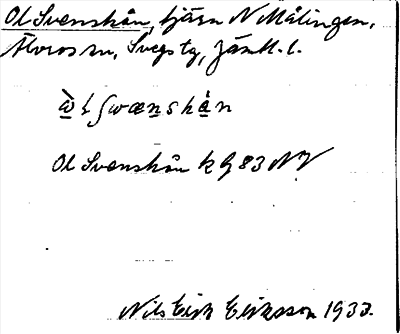 Ol Svenskån, tjärn N Målingen,
Älvros sn, Svegs tg, Jämtl. l.
Ol Svenskån k G 83 NV
Nils Erik Eriksson 1933.